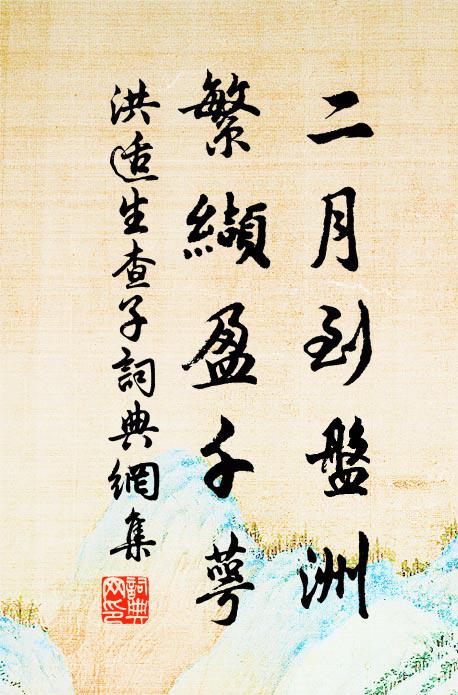 二月到盤洲
繁纈盈千萼
洪适生查子詞典網集
詞典網印